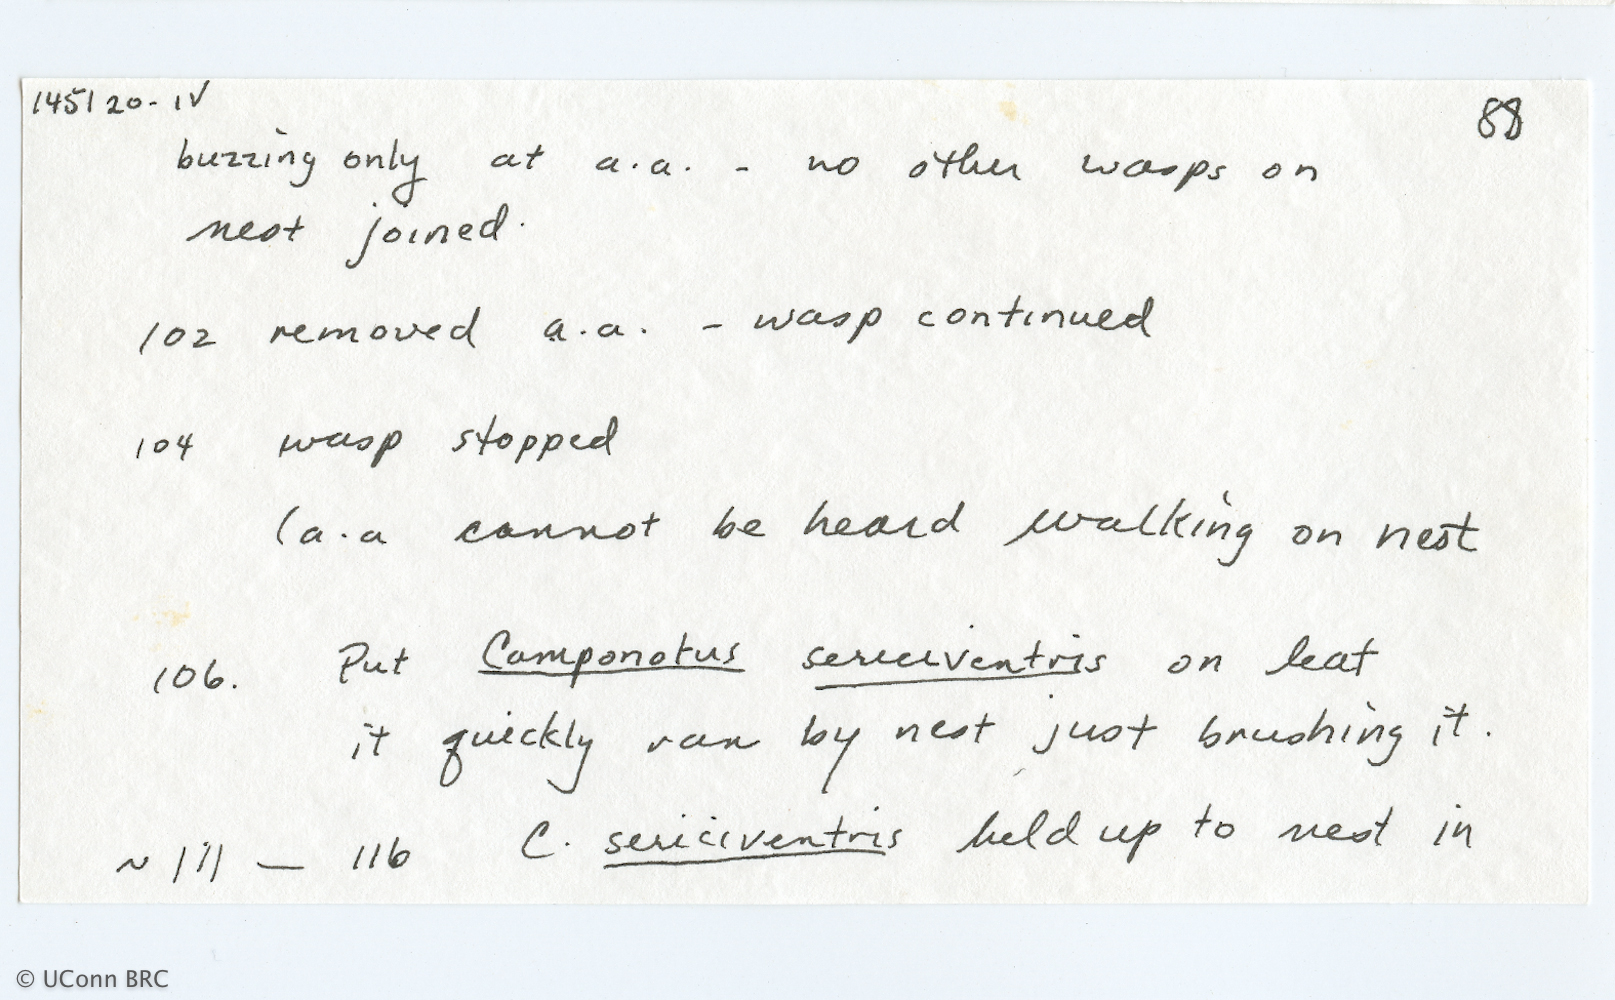 145120-IV
88
buzzing only at a.a. - no other wasps on
nest joined.
102 removed a.a. - wasp continued
104 wasp stopped
(a.a cannot be heard walking on nest
106. Put Camponotus sericeiventris on leaf
it quickly ran by nest just brushing it.
~ 111 — 116 C. sericiventris held up to nest in
© UConn BRC